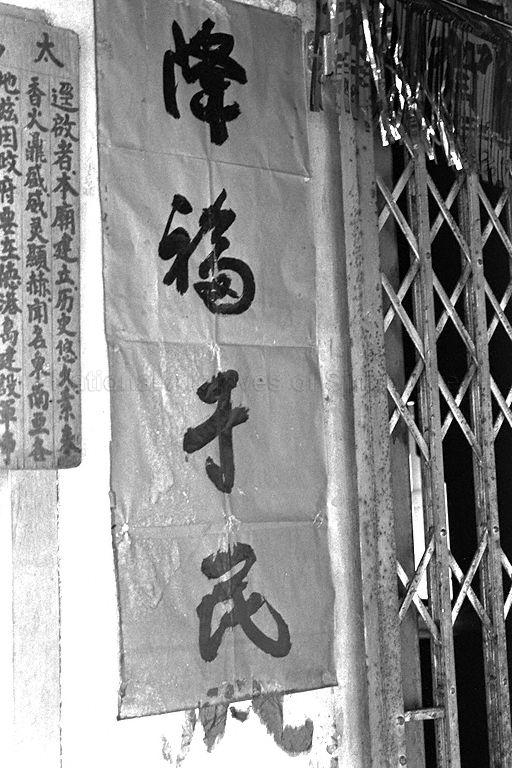 降福于民
太
逕啟者本廟建立历史悠久素來
香火鼎盛威灵顯赫聞名東南亚各
地兹因政府要在德港島建設軍